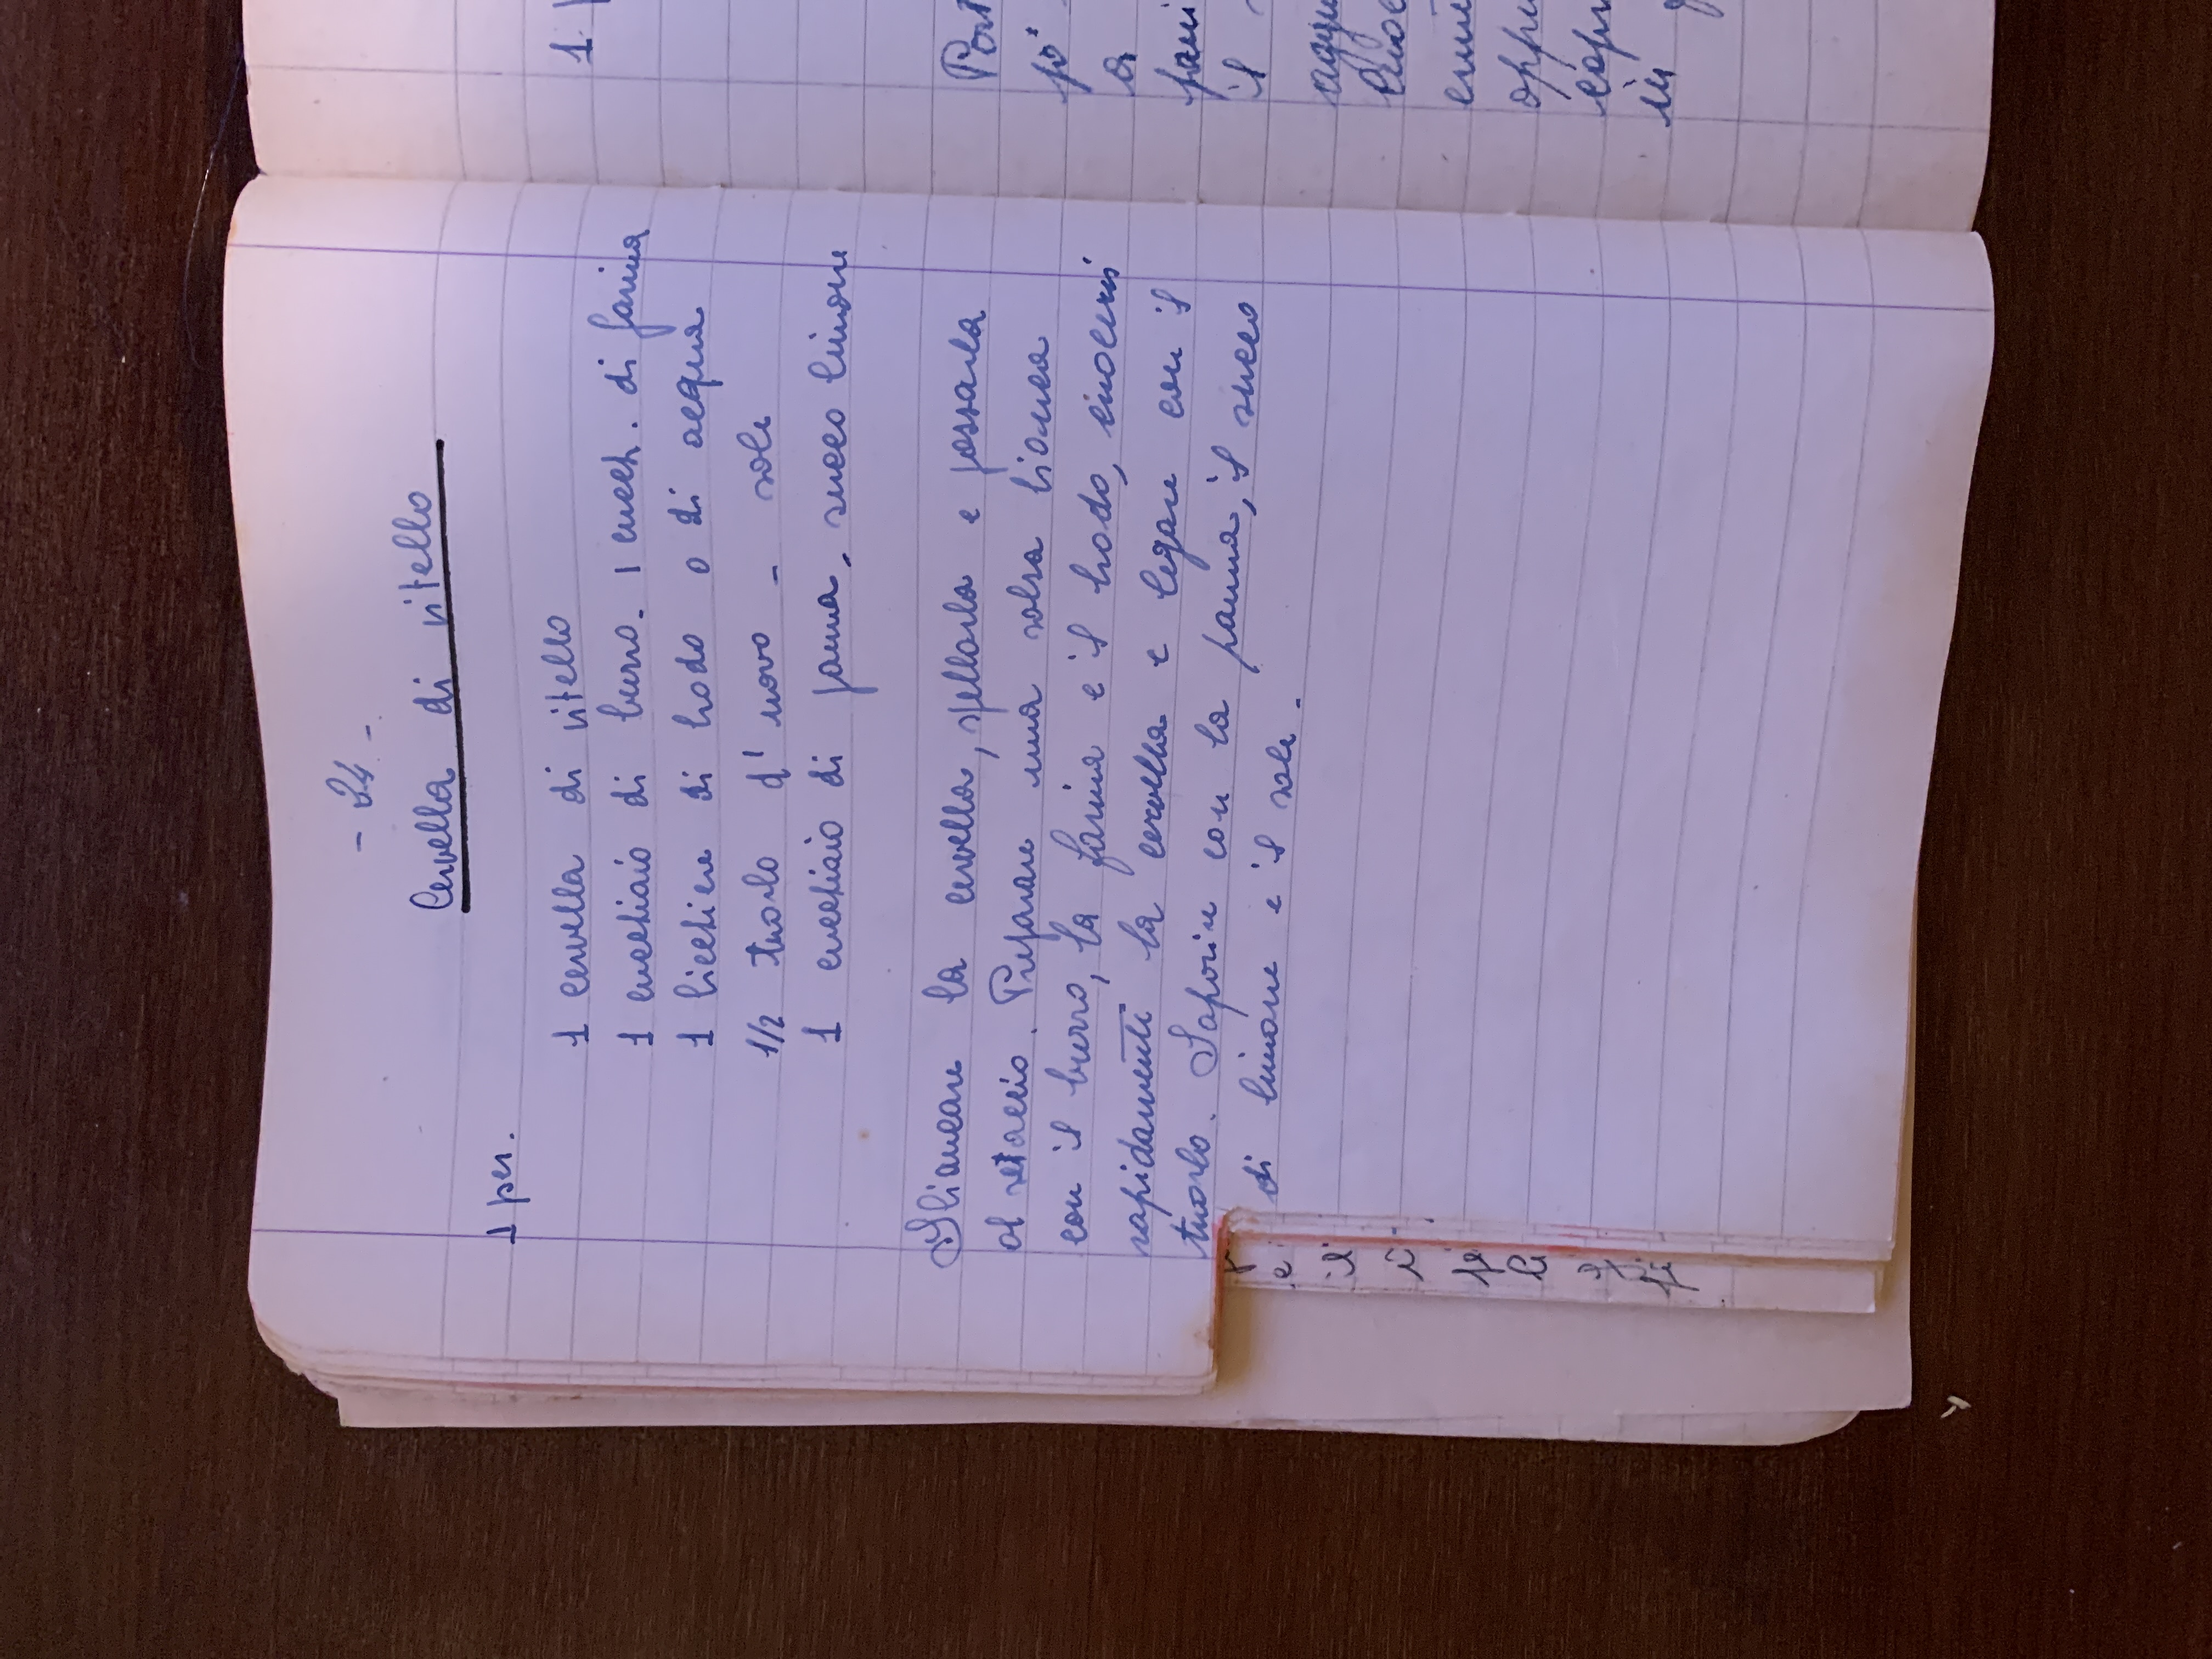 - 24 -
Cervella di vitello
1 per.
1 cervella di vitello
1 cucchiaio di burro. 1 cucch. di farina
1 bicchiere di brodo o di acqua
1/2 tuorlo d'uovo - sale
1 cucchiaio di panna, succo limone
Sbiancare la cervella, spellarla e passarla
al setaccio. Preparare una salsa bianca
con il burro, la farina e il brodo, cuocervi
rapidamente la cervella e legare con il
tuorlo. Saporire con la panna, il succo
di limone e il sale.
1
Port
po'
a
il
in